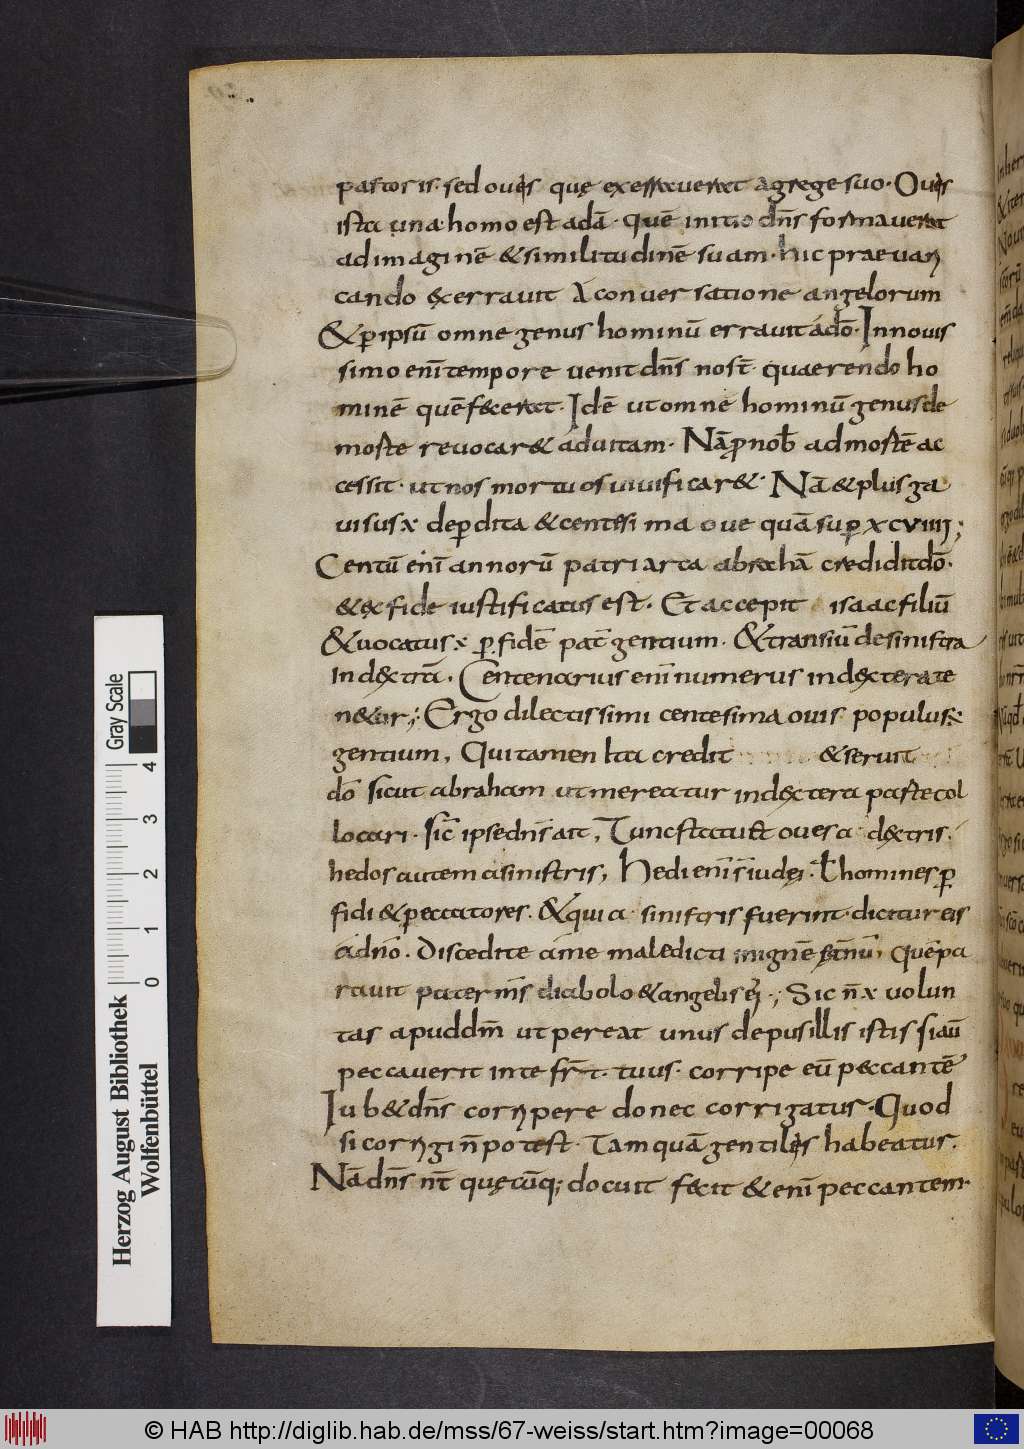 pastoris· sed ouis quę exerrauerat agrege suo· Ouis
ista una· homo est adā· quē initio dn̄s formauerat
ad imaginē &similitudinē suam· hic praeuari
cando ęxerrauit à conuersatione angelorum
& ꝑ ipsū omne genus hominū errauit adō· In nouis
simo enī tempore uenit dn̄s nost̄· quaerendo ho
minē quē fecerat· Idē ut omne hominū genus de
morte reuocar& aduitam· Nā ꝓ nob̄ ad mortē ac
cessit· ut nos mortuos uiuificar&· Nā & plus ga
uisus x̄ de ꝑdita & centesima oue quā suꝑ xcviiij;
Centū enī annorū patriarca abrahā credidit dō·
& ęx fide iustificatus est· Et accepit isaac filiū
& uocatus x̄ ꝑ fidē pat̄ gentium· & transiū de sinistra
in dęxtrā· Centenarius enī numerus in dęxtera te
n&ur; Ergo dilectissimi centesima ouis populus x̄
gentium, Qui tamen Ita credit & seruit
dō sicut abraham ut mereatur in dęxtera parte col
locari· sic̄ ipse dn̄s ait, Tunc statu& oues a dęxtris·
hedos autem a sinistris, Hedi enī s̄ iudęi· ł homines ꝑ
fidi & peccatores· & qui a sinistris fuerint· dicitur eis
a dn̄o· Discedite a me maledicti in ignē &̄nū, quē pa
rauit pater m̄s diabolo & angelis eī·; Sic n̄ x̄ uolun
tas apud dm̄ ut pereat unus de pusillis istis si aū
peccauerit in te fr̄t· tuus· corripe eū peccantē
Iub& dn̄s corripere donec corrigatur· Quod
si corrigi n̄ potest· Tam quā gentiles habeatur·
Nā dn̄s n̄t quęcūq; docuit fecit & enī peccantem
Herzog August Bibliothek
Wolfenbüttel
0 1 2 3 4
Gray Scale
© HAB http://diglib.hab.de/mss/67-weiss/start.htm?image=00068